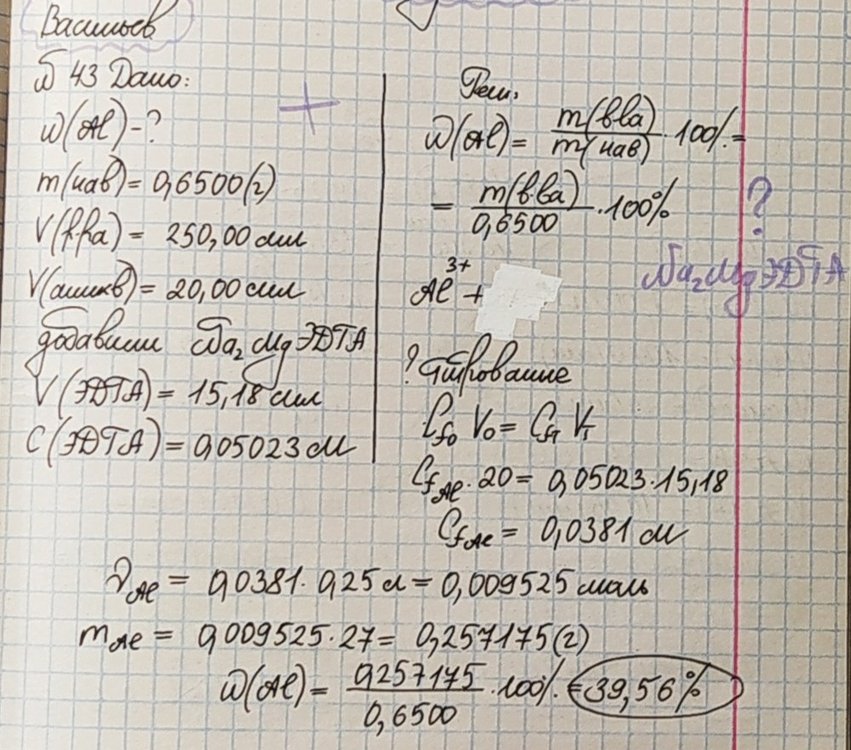 Васильев
№ 43 Дано:
W(Al) - ?
m(нав) = 0,6500(г)
V(р-ра) = 250,00 мл
V(аликв) = 20,00 мл
добавили Na₂MgЭДТА
V(ЭДТА) = 15,18 мл
C(ЭДТА) = 0,05023 М
Реш.
W(Al) = m(в-ва)/m(нав) · 100% =
= m(в-ва)/0,6500 · 100%
?
Al³⁺ +
Na₂MgЭДТА
? Титрование
Cf₀ V₀ = Cfт Vт
Cf Al · 20 = 0,05023 · 15,18
Cf Al = 0,0381 М
ν Al = 0,0381 · 0,25 л = 0,009525 моль
m Al = 0,009525 · 27 = 0,257175(г)
W(Al) = 0,257175/0,6500 · 100% = 39,56%